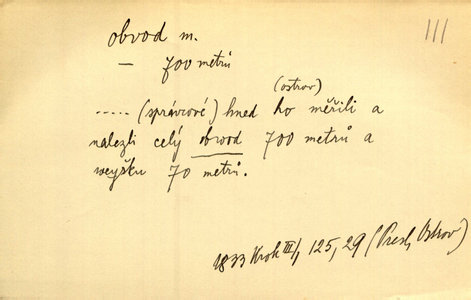 III
obvod m.
— 700 metrů
(ostrov)
..... (správcové) hned ho měřili a
nalezli celý obwod 700 metrů a
weyšku 70 metrů.
1833 Krok III/1, 125, 29 (Presl, Ostrov)